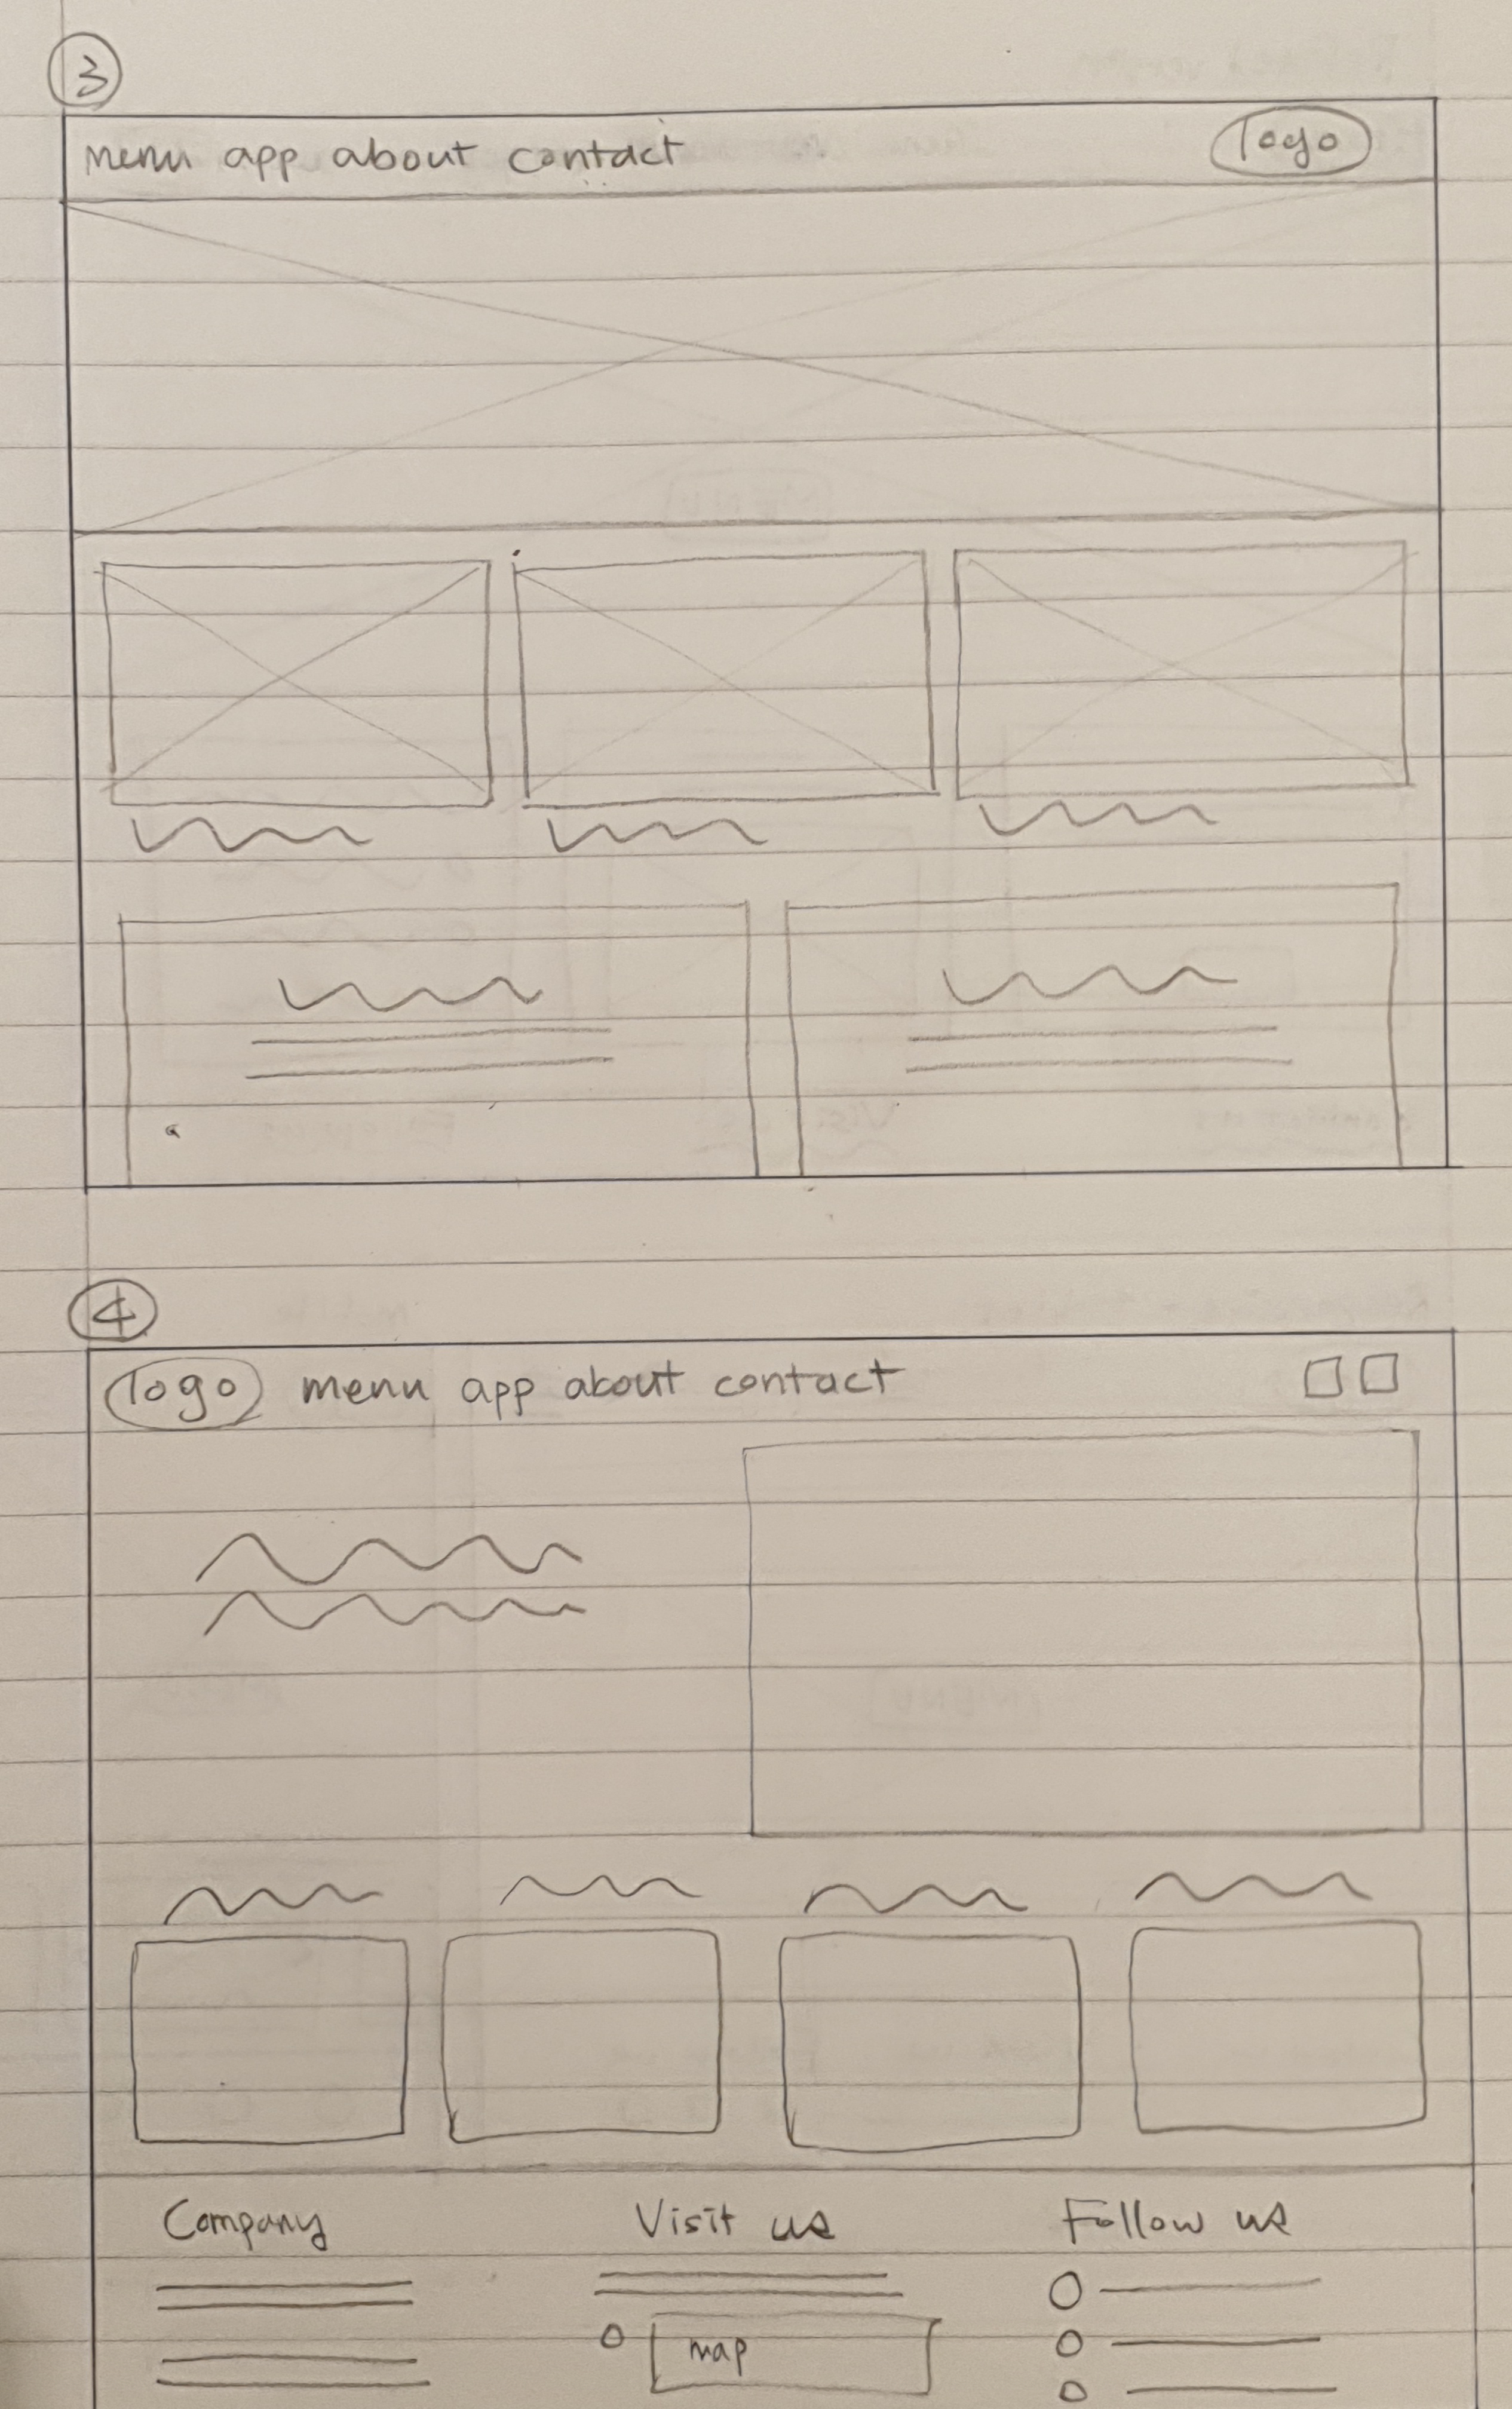 3
menu app about contact logo
4
logo menu app about contact
Company Visit us Follow us
map